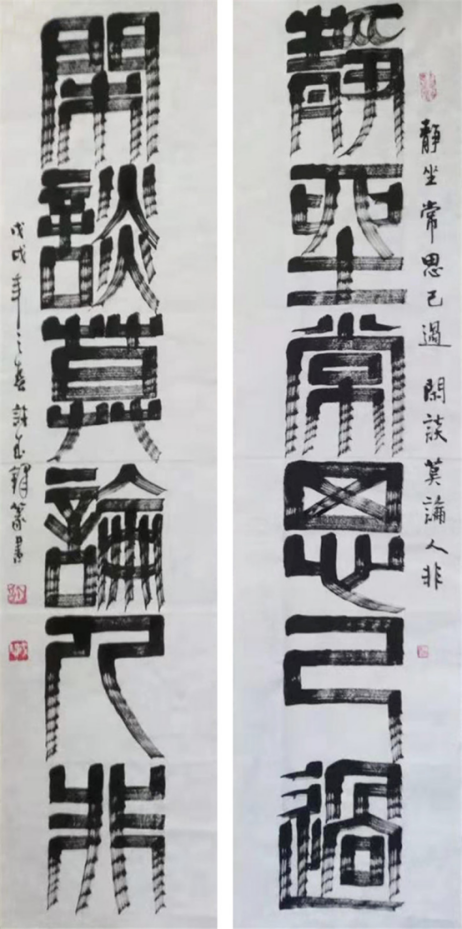 靜坐常思己過
靜坐常思己過 閑談莫論人非
閒談莫論人非
戊戌年之春
篆書